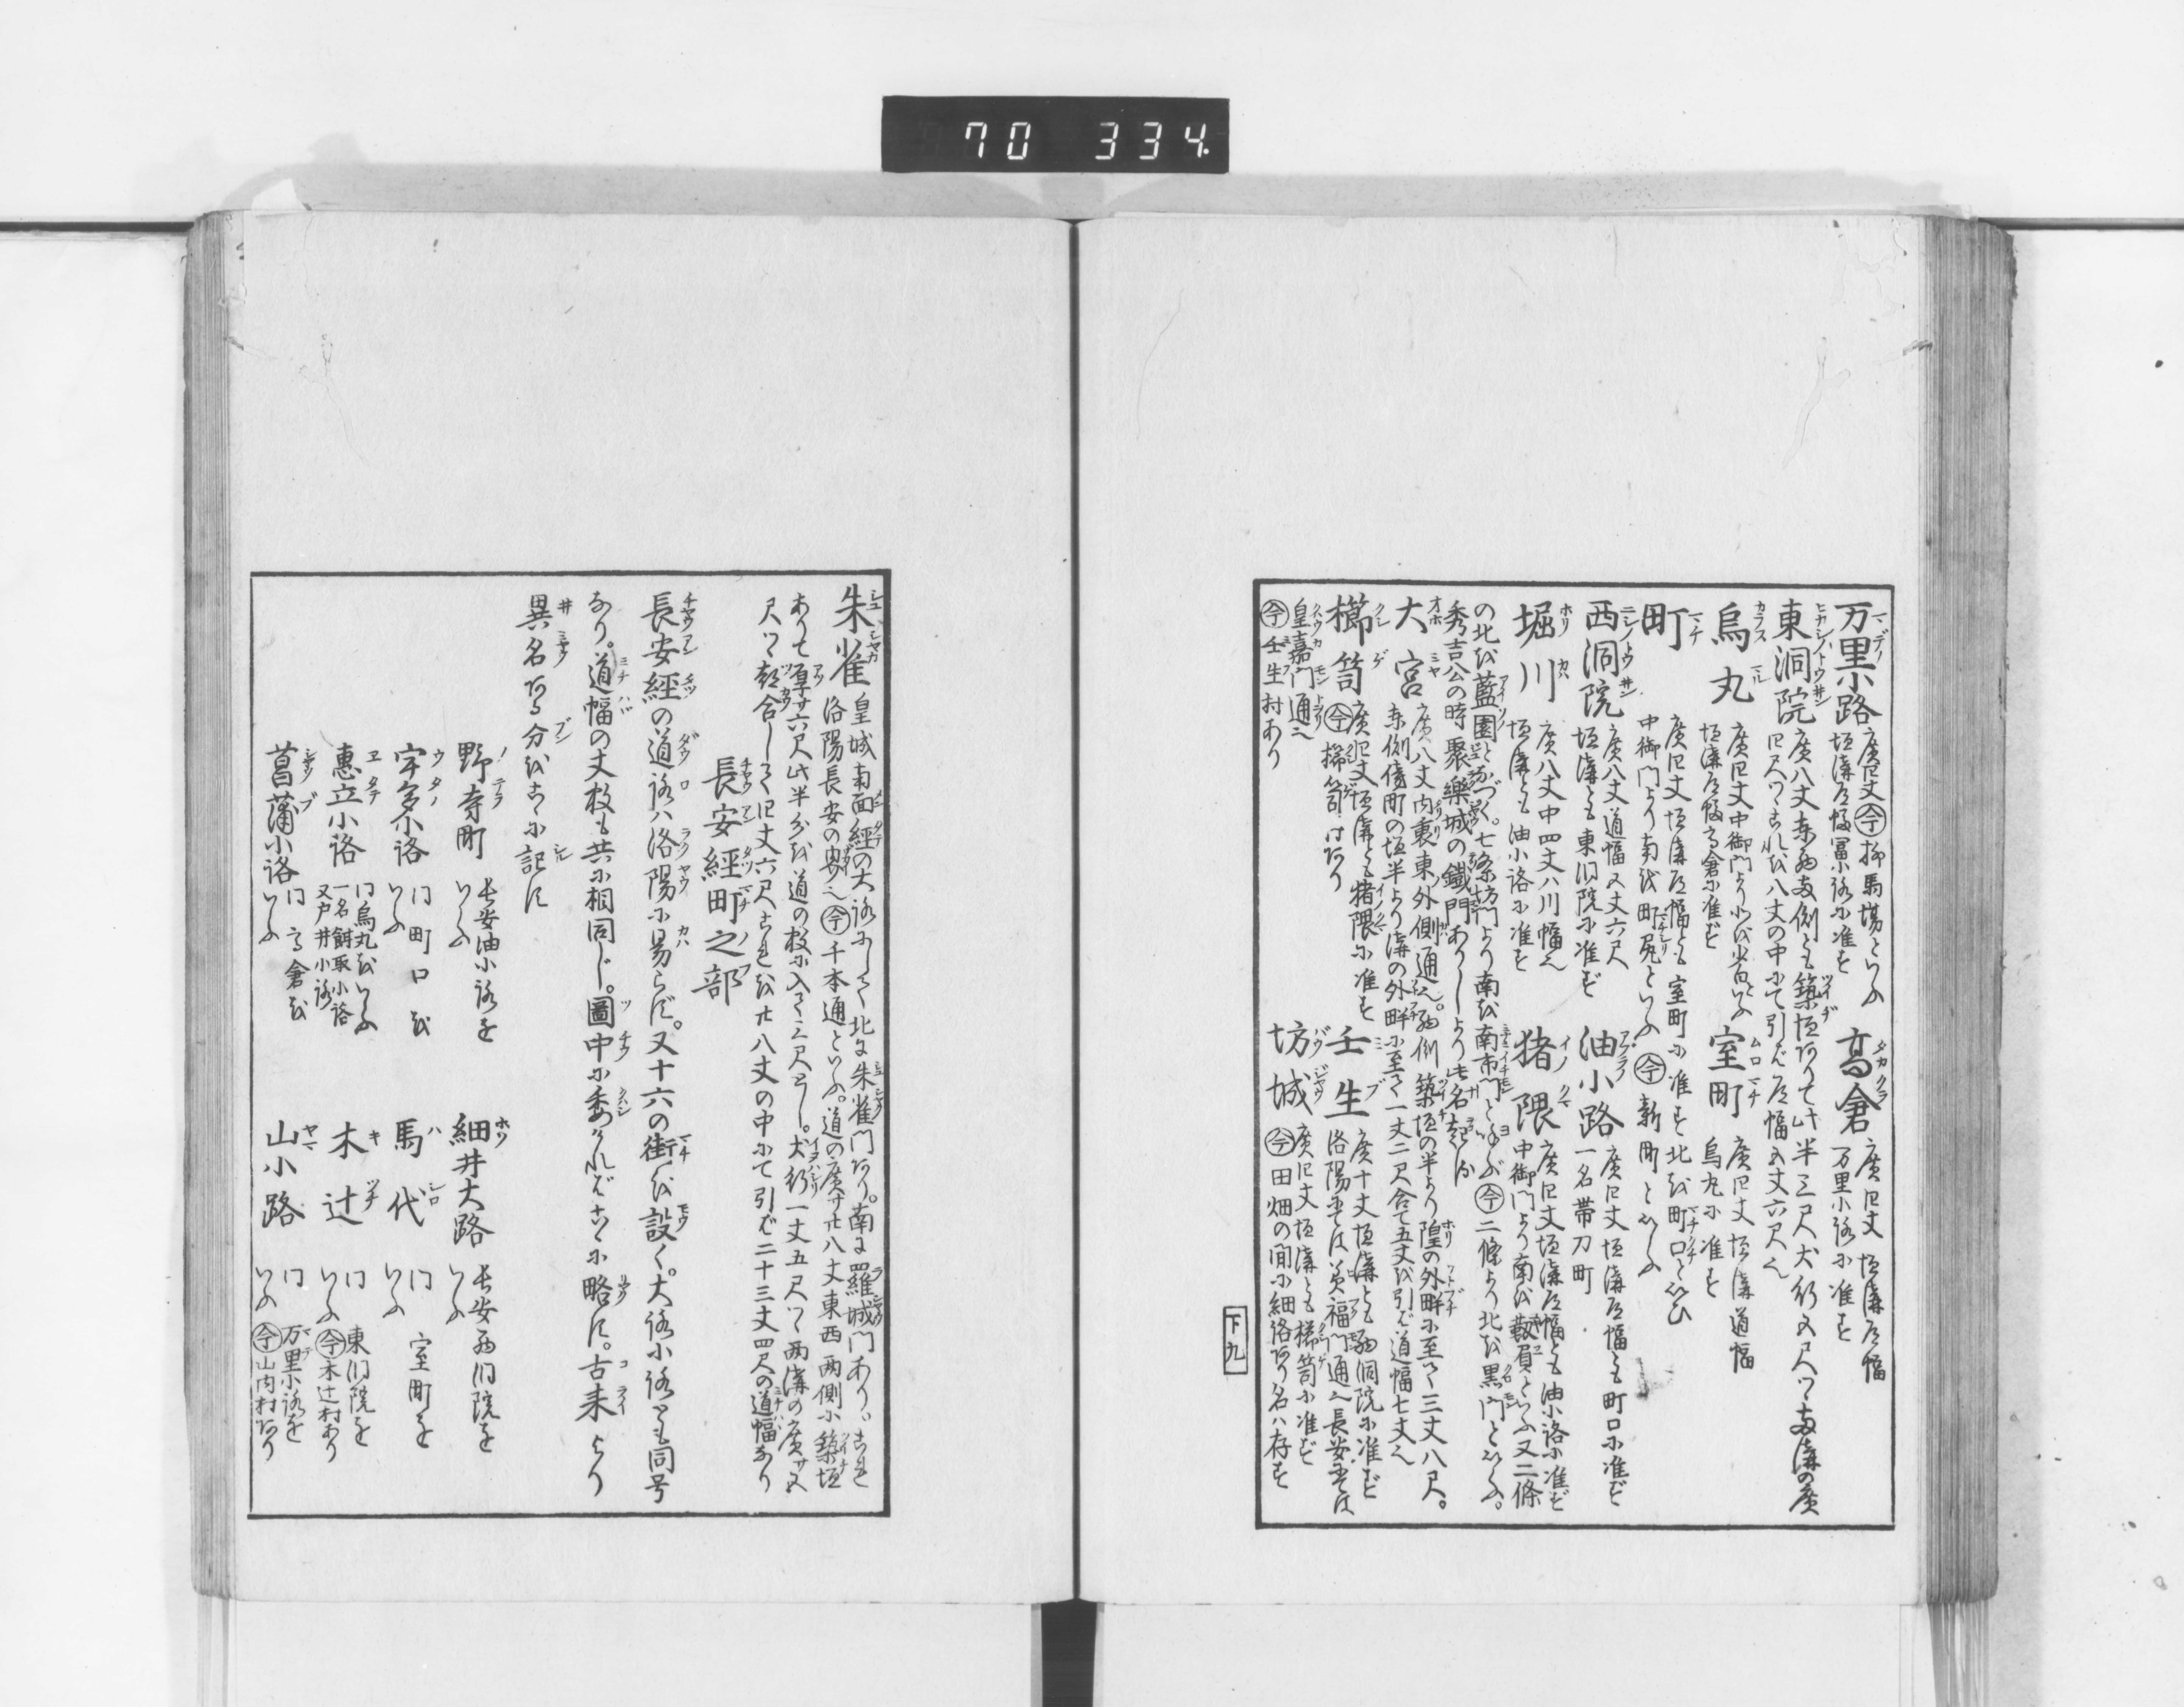 70 334.
万里小路 廣四丈 ㋿今 柳馬場といふ
垣溝道幅冨小路に准ず
高倉 廣四丈 垣溝道幅
万里小路に准ず
東洞院 廣八丈東西両側とも築垣ありて此半三尺犬行五尺づゝ両溝の廣
四尺づゝこれを八丈の中にて引ば道幅五丈六尺也
烏丸 廣四丈中御門より北を
垣溝道幅高倉に准ず
室町 廣四丈垣溝道幅
烏丸に准ず
町 廣四丈垣溝道幅とも室町に准ず北を町口といひ
中御門より南を町尻といふ 今 新町といふ
西洞院 廣八丈道幅五丈六尺
垣溝とも東洞院に准ず
油小路 廣四丈垣溝道幅とも町口に准ず
一名帯刀町
堀川 廣八丈中四丈ハ川幅也
垣溝とも油小路に准ず
猪隈 廣四丈垣溝道幅とも油小路に准ず
中御門より南を靱負といふ又二條
の北を藍園となづく。七条坊門より南を南市門とよぶ 今 二條より北を黒門といふ。
秀吉公の時聚樂城の鐵門ありしより此名起る
大宮 廣八丈内裏東外側通也。西側築垣の半より隍の外畔に至て三丈八尺。
東側傍町の垣半より溝の外畔に至て一丈二尺合て五丈を引ば道幅七丈也
櫛笥 廣四丈垣溝とも猪隈に准ず
今 櫛笥町あり
壬生 廣十丈垣溝とも西洞院に准ず
洛陽にては美福門通也長安にては
皇嘉門通也
今 壬生村あり
坊城 廣四丈垣溝とも櫛笥に准ず
今 田畑の間に細路あり名ハ存ず
下九
朱雀 皇城南面經の大路にして北に朱雀門あり。南に羅城門あり。これ
洛陽長安の界也 今 千本通といふ。道の廣サ廿八丈東西両側に築垣
ありて厚サ六尺此半分を道の数に入て三尺とし。犬行一丈五尺づゝ両溝の廣サ五
尺づゝ都合して四丈六尺これを廿八丈の中にて引ば二十三丈四尺の道幅なり
長安經町之部
長安經の道路ハ洛陽に易らず。又十六の街を設く。大路小路とも同号
なり。道幅の丈数も共に相同じ。圖中に委けれバこゝに略す。古来より
異名ある分をこゝに記す
野寺町 長安油小路を
いふ
細井大路 長安西洞院を
いふ
宇多小路 同町口を
いふ
馬代 同室町を
いふ
惠立小路 同烏丸をいふ
一名餌取小路
又戸井小路
木辻 同東洞院を
いふ 今 木辻村あり
菖蒲小路 同高倉を
いふ
山小路 同万里小路を
いふ 今 山内村あり